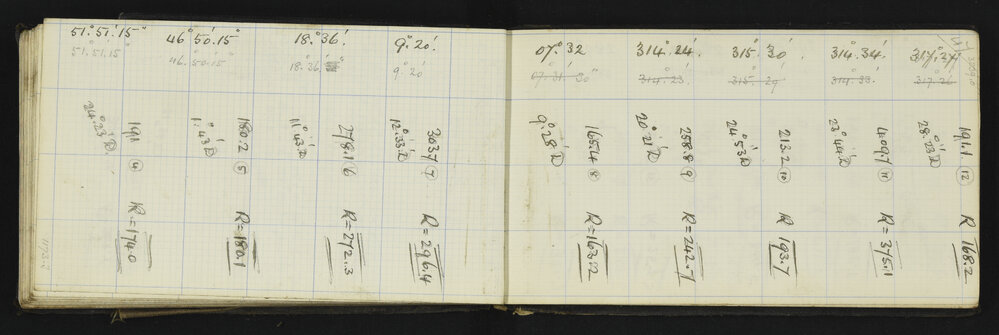 51° 51' 15"
51° 51' 15"
46° 50' 15"
46. 50. 15
18° 36'
18° 36'
9° 20'
9° 20'
07° 32
07° 31' 30"
314° 24'
314° 23'
315° 30'
315° 29
314° 34'
314° 33'
317° 27'
317° 26
191 (4)
24° 23' D
R = 174.0
180.2 (5)
1° 43' D
R = 180.1
278.1 (6)
11° 43' D
R = 272.3
303.7 (7)
12° 33' D
R = 296.4
165.4 (8)
9° 28' D
R = 163.2
258.8 (9)
20° 21' D
R = 242.7
213.2 (10)
24° 53 D
R 193.7
409.7 (11)
23° 44' D
R = 375.1
191.1 (12)
28° 23' D
R 168.2